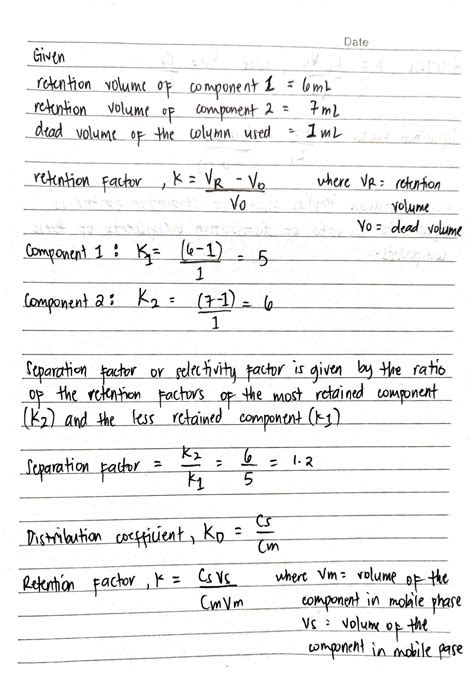 Date
Given
retention volume of component 1 = 6mL
retention volume of component 2 = 7mL
dead volume of the column used = 1mL
retention factor , K = VR - Vo / Vo where VR = retention volume
Vo = dead volume
Component 1 : K1 = (6-1) / 1 = 5
Component 2 : K2 = (7-1) / 1 = 6
Separation factor or selectivity factor is given by the ratio
of the retention factors of the most retained component
(K2) and the less retained component (K1)
Separation factor = K2 / K1 = 6 / 5 = 1.2
Distribution coefficient, KD = Cs / Cm
Retention factor , K = CsVs / CmVm where Vm = volume of the
component in mobile phase
Vs = volume of the
component in mobile pase